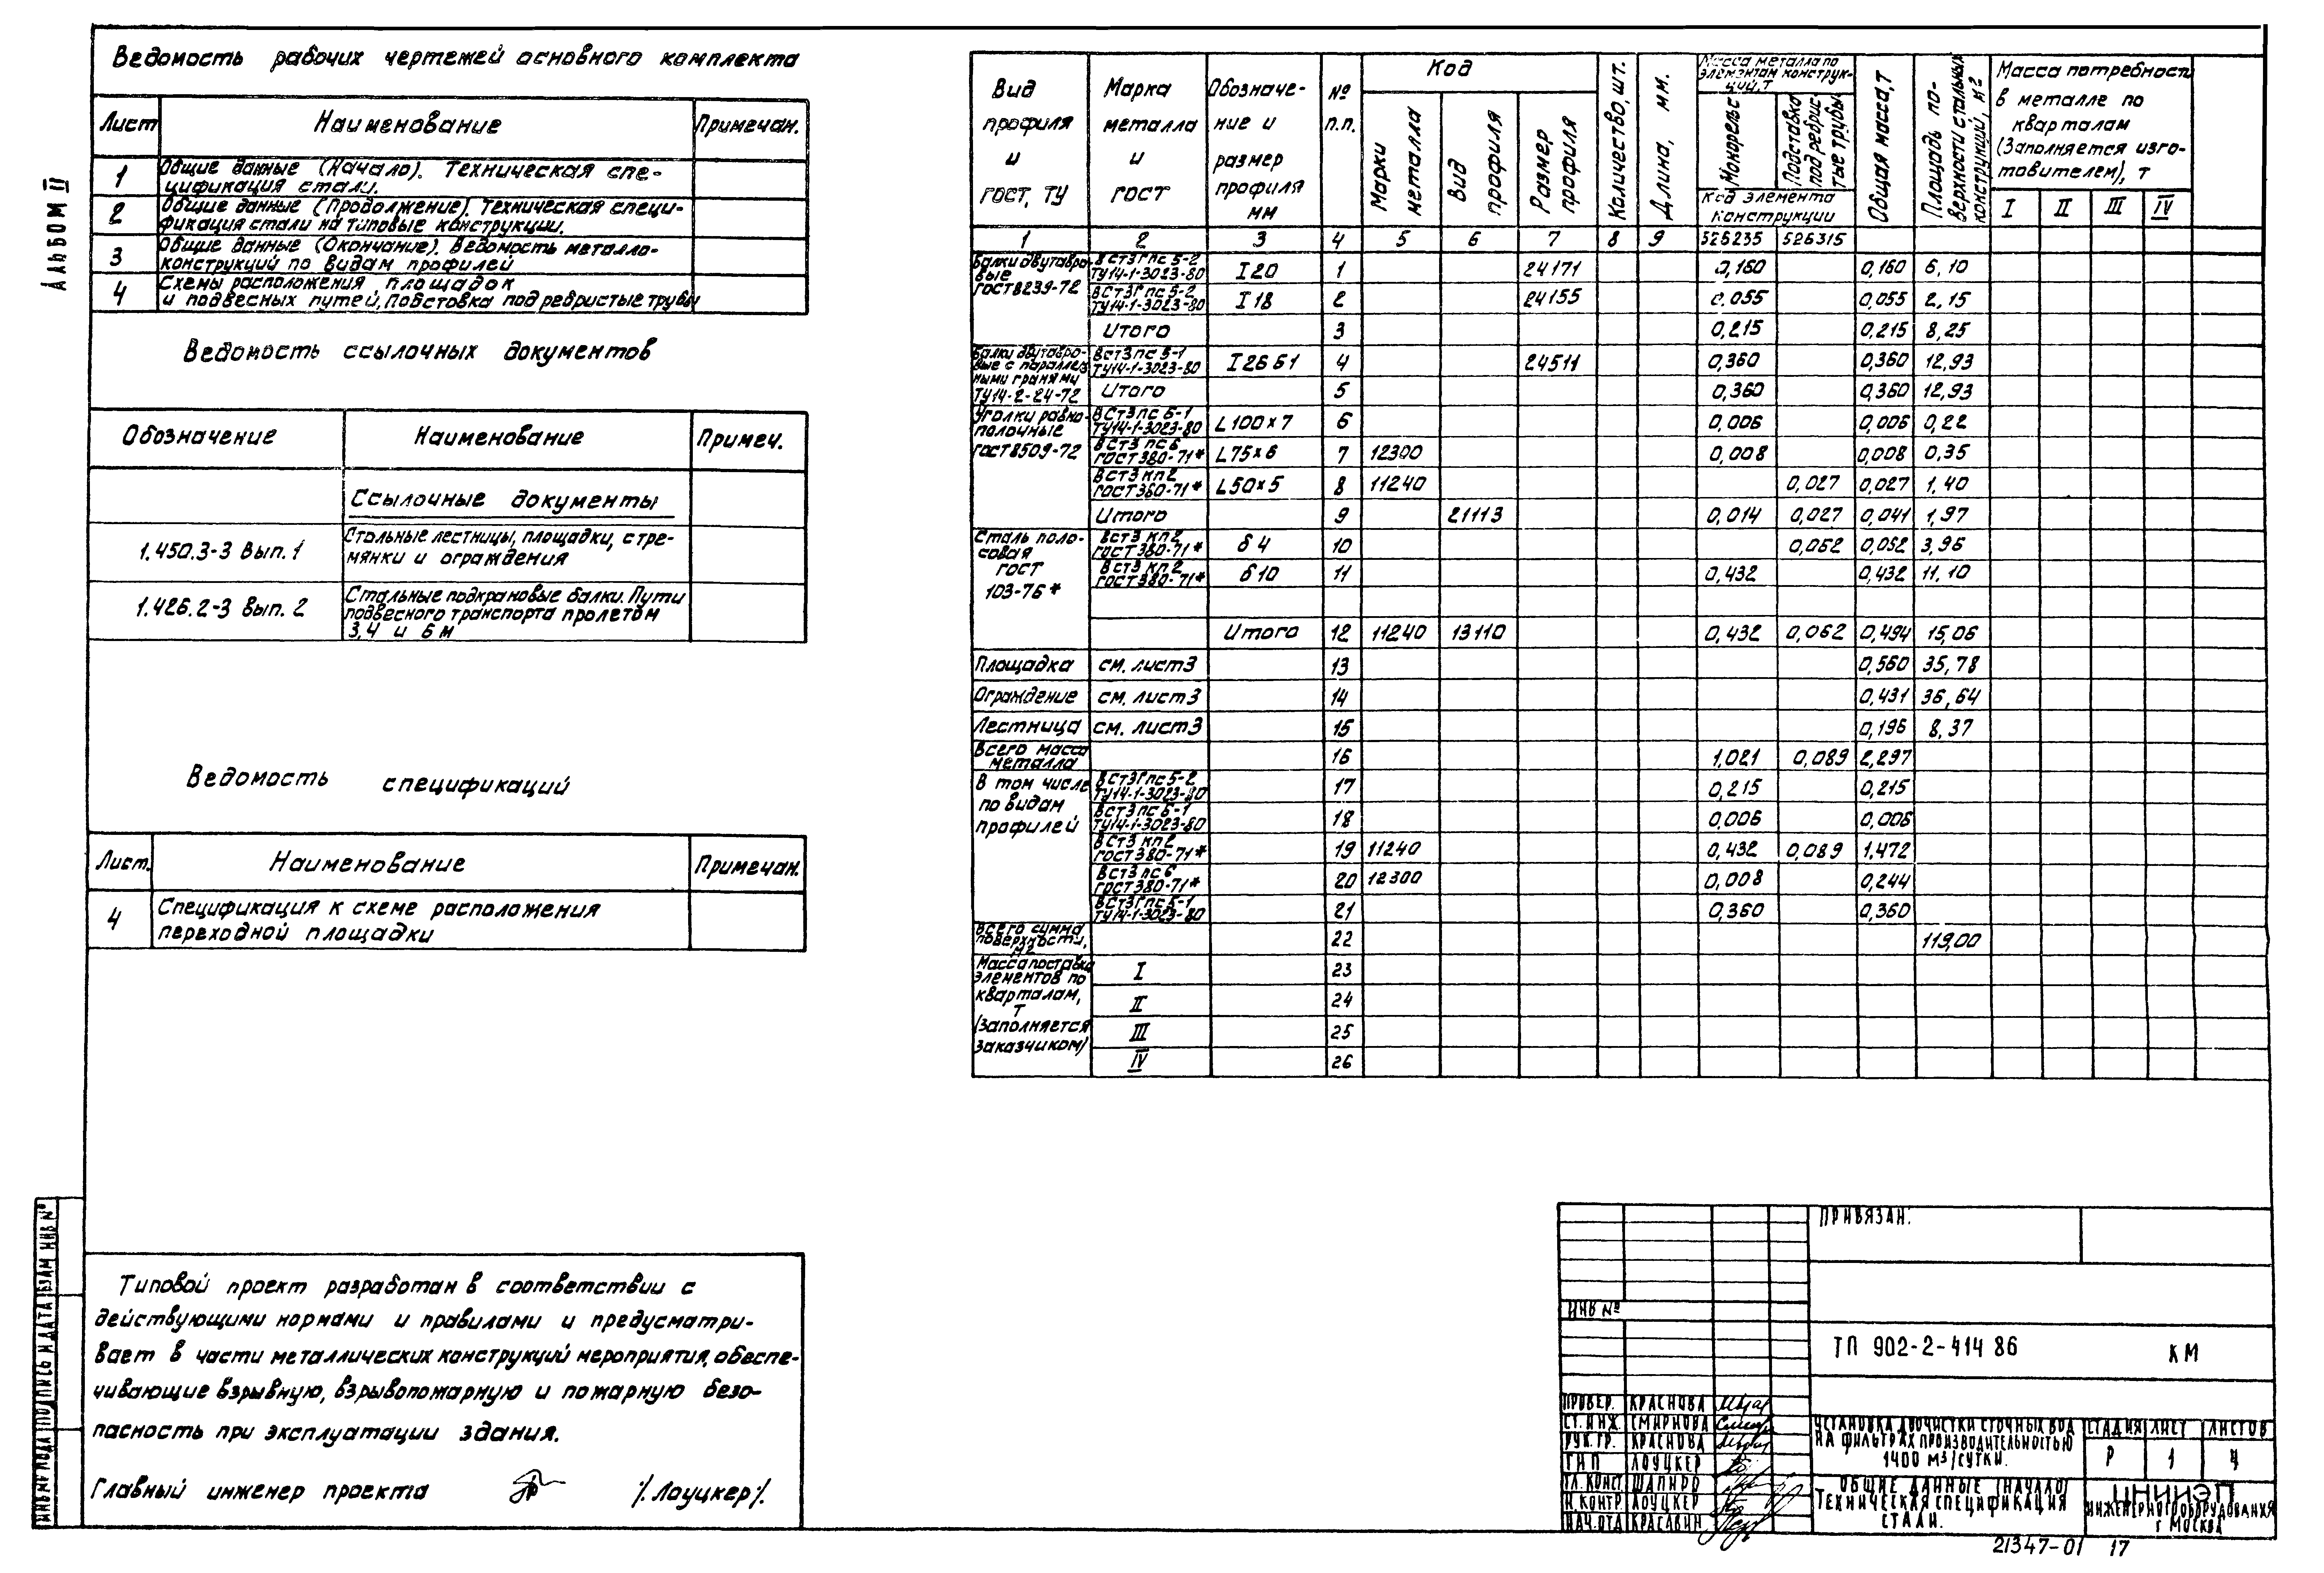 АЛЬБОМ II
Ведомость рабочих чертежей основного комплекта
Лист Наименование Примечан.
1 Общие данные (Начало). Техническая спе-
цификация стали.
2 Общие данные (Продолжение). Техническая специ-
фикация стали на типовые конструкции.
3 Общие данные (Окончание). Ведомость металло-
конструкций по видам профилей
4 Схемы расположения площадок
и подвесных путей, подстовка под ребристые трубы
Ведомость ссылочных документов
Обозначение Наименование Примеч.
Ссылочные документы
1.450.3-3 Вып. 1 Стальные лестницы, площадки, стре-
мянки и ограждения
1.426.2-3 Вып. 2 Стальные подкрановые балки. Пути
подвесного транспорта пролетом
3,4 и 6 м
Ведомость спецификаций
Лист. Наименование Примечан.
4 Спецификация к схеме расположения
переходной площадки
Типовой проект разработан в соответствии с
действующими нормами и правилами и предусматри-
вает в части металлических конструкций мероприятия, обеспе-
чивающие взрывную, взрывопожарную и пожарную безо-
пасность при эксплуатации здания.
Главный инженер проекта /. Лоуцкер /.
Вид профиля и ГОСТ, ТУ
Марка металла и ГОСТ
Обозначе-
ние и размер профиля мм
№ п.п.
Код
Марки металла
Вид профиля
Размер профиля
Количество, шт.
Длина, мм.
Масса металла по
элементам конструк-
ций, т
Монорельс
Подставка
под ребрис-
тые трубы
Код элемента
конструкции
Общая масса, т
Площадь по-
верхности стальных
конструкций, м²
Масса потребности
в металле по
кварталам
(Заполняется изго-
товителем), т
I II III IV
1 2 3 4 5 6 7 8 9 526235 526315
Балки двутавро-
вые
ГОСТ 8239-72
ВСт3Гпс 5-2
ТУ14-1-3023-80 I 20 1 24171 0,160 0,160 6,10
ВСт3Гпс 5-2
ТУ14-1-3023-80 I 18 2 24155 0,055 0,055 2,15
Итого 3 0,215 0,215 8,25
Балки двутавро-
вые с параллель
ными гранями
ТУ14-2-24-72
ВСт3пс 5-1
ТУ14-1-3023-80 I 26Б1 4 24511 0,360 0,360 12,93
Итого 5 0,360 0,360 12,93
Уголки равно-
полочные
ГОСТ 8509-72
ВСт3пс 6-1
ТУ14-1-3023-80 L100×7 6 0,006 0,006 0,22
ВСт3 пс 6
ГОСТ 380-71* L75×6 7 12300 0,008 0,008 0,35
ВСт3 кп2
ГОСТ 380-71* L50×5 8 11240 0,027 0,027 1,40
Итого 9 21113 0,014 0,027 0,041 1,97
Сталь поло-
совая
ГОСТ
103-76*
ВСт3 кп2
ГОСТ 380-71* δ4 10 0,062 0,062 3,96
ВСт3 кп2
ГОСТ 380-71* δ10 11 0,432 0,432 11,10
Итого 12 11240 13110 0,432 0,062 0,494 15,06
Площадка см. лист 3 13 0,560 35,78
Ограждение см. лист 3 14 0,431 36,64
Лестница см. лист 3 15 0,196 8,37
Всего масса
металла 16 1,021 0,089 2,297
В том числе
по видам
профилей
ВСт3Гпс 5-2
ТУ14-1-3023-80 17 0,215 0,215
ВСт3 пс 6-1
ТУ14-1-3023-80 18 0,006 0,006
ВСт3 кп2
ГОСТ 380-71* 19 11240 0,432 0,089 1,472
ВСт3 пс 6
ГОСТ 380-71* 20 12300 0,008 0,244
ВСт3Гпс 5-1
ТУ14-1-3023-80 21 0,360 0,360
Всего сумма
поверхности,
м2 22 119,00
Масса поставки
элементов по
кварталам,
т
(заполняется
заказчиком)
I 23
II 24
III 25
IV 26
ПРИВЯЗАН:
ИНВ №
ТП 902-2-414 86 КМ
ПРОВЕР. КРАСНОВА
СТ. ИНЖ. СМИРНОВА
РУК. ГР. КРАСНОВА
ГИП ЛОУЦКЕР
ГЛ. КОНСТ. ШАПИРО
Н. КОНТР. ЛОУЦКЕР
НАЧ. ОТД. КРАСАВИН
УСТАНОВКА ДООЧИСТКИ СТОЧНЫХ ВОД
НА ФИЛЬТРАХ ПРОИЗВОДИТЕЛЬНОСТЬЮ
1400 М³/СУТКИ.
СТАДИЯ ЛИСТ ЛИСТОВ
Р 1 4
ОБЩИЕ ДАННЫЕ (НАЧАЛО)
ТЕХНИЧЕСКАЯ СПЕЦИФИКАЦИЯ
СТАЛИ.
ЦНИИЭП
ИНЖЕНЕРНОГО ОБОРУДОВАНИЯ
г. МОСКВА
ИНВ № ПОДЛ ПОДПИСЬ И ДАТА ВЗАМ ИНВ №
21347-01 17